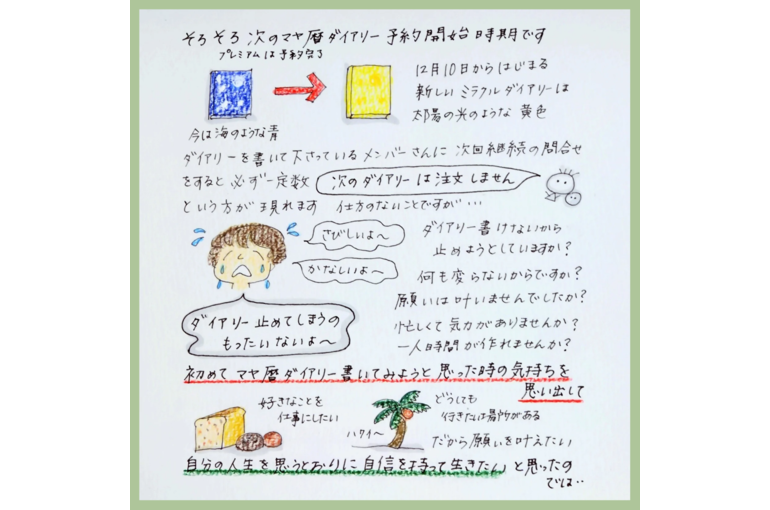 そろそろ次のマヤ暦ダイアリー予約開始時期です
プレミアムは予約完了
12月10日からはじまる
新しいミラクルダイアリーは
太陽の光のような黄色
今は海のような青
ダイアリーを書いて下さっているメンバーさんに次回継続の問合せ
をすると必ず一定数 次のダイアリーは注文しません
という方が現れます 仕方のないことですが…
さびしいよ〜
かなしいよ〜
ダイアリー止めてしまうの
もったいないよ〜
ダイアリー書けないから
止めようとしていますか?
何も変らないからですか?
願いは叶いませんでしたか?
忙しくて気力がありませんか?
一人時間が作れませんか?
初めてマヤ暦ダイアリー書いてみようと思った時の気持ちを
思い出して
好きなことを
仕事にしたい
ハワイ〜
どうしても
行きたい場所がある
だから願いを叶えたい
自分の人生を思うとおりに自信を持って生きたい と思ったの
では‥